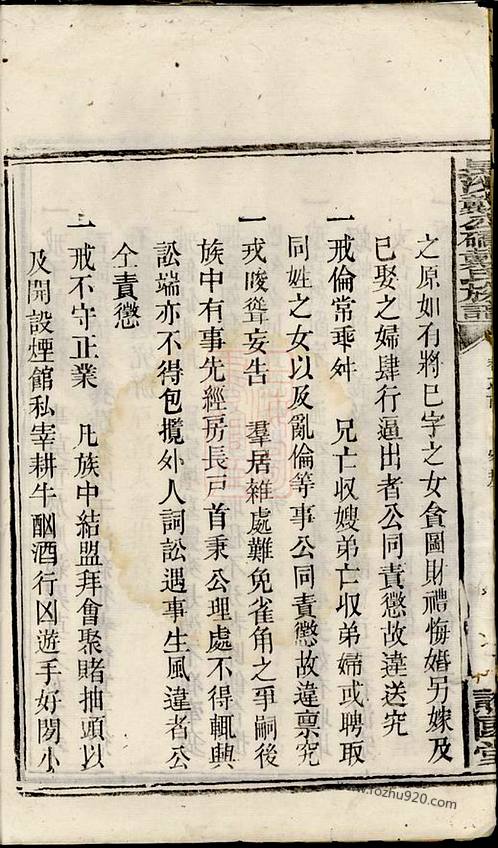 之原如有將已字之女貪圖財禮悔婚另嫁及
已娶之婦肆行逼出者公同責懲故違送究
一戒倫常乖舛 兄亡收嫂弟亡收弟婦或聘取
同姓之女以及亂倫等事公同責懲故違稟究
一戒唆聳妄告 羣居雜處難免雀角之爭嗣後
族中有事先經房長戶首秉公理處不得輒興
訟端亦不得包攬外人詞訟遇事生風違者公
仝責懲
一戒不守正業 凡族中結盟拜會聚賭抽頭以
及開設煙館私宰耕牛酗酒行凶遊手好閒小
www.rozhu920.com